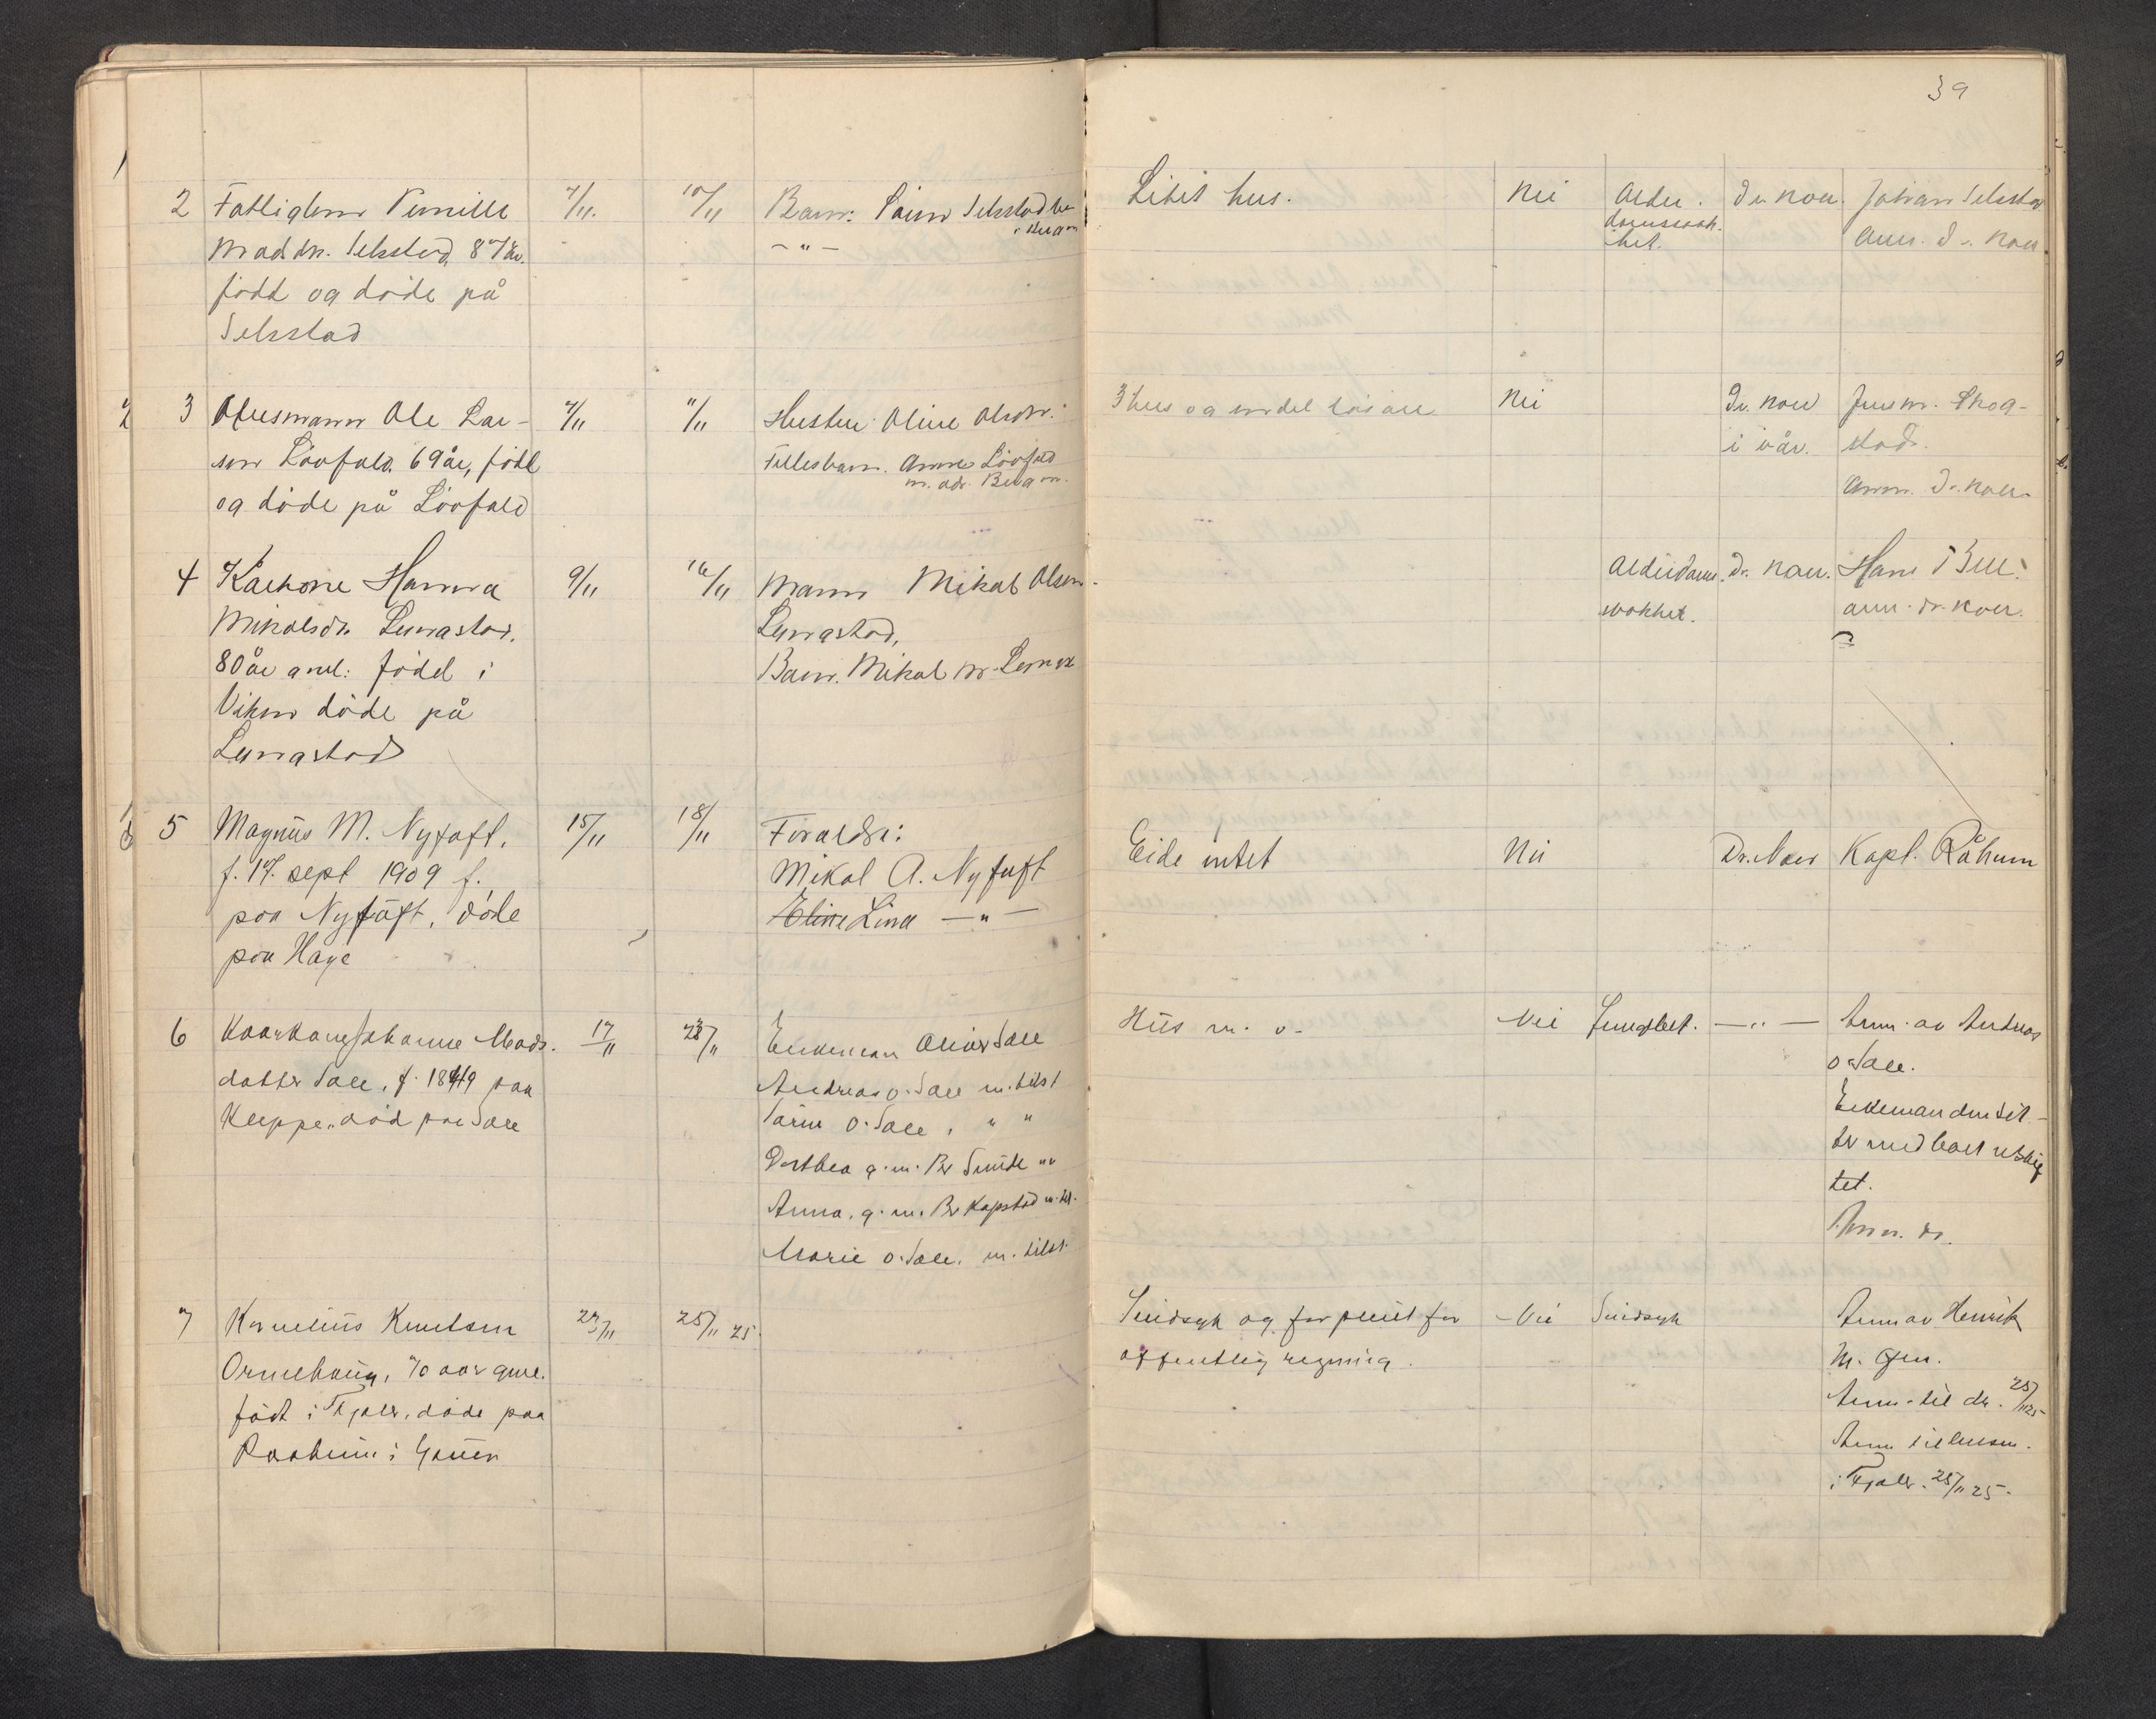 39
2 Fattiglem Pernille
Madsdr. Selsstad, 87 år.
født og døde på
Selsstad
7/11. 10/11
Barn: Selsstad
– " –
Litet hus.
Nei
Alder-
domssvak-
het.
Dr. Koer.
Johan Selsstad
Anm. dr. Koer
3 Husmann Ole Lar-
sen Løvfald 69 år, født
og døde på Løvfald
7/11 11/11
Hustru: Oline Olsdtr.
Fællesbarn. Anne Løvfald
m. adr. Bergen.
3 hus og en del løsøre
Nei
Dr. Koer
i vår.
Jensm. Skog-
stad.
Anm. dr. Koer.
4 Kårkone Hanna
Mikalsdr. Lunnastad.
80 år aml. født i
Viken døde på
Lunnastad
9/11 16/11
Mann Mikal Olsen
Lunnastad,
Barn. Mikal m.
Alderdoms-
svakhet.
Dr. Koer.
Hans
anm. dr. Koer.
5 Magnus M. Nytuft.
f. 17. sept 1909 f.
paa Nytuft, døde
paa Hage
15/11 18/11
Foraldre:
Mikal A. Nytuft
Eline Lina – " –
Eide intet
Nei
Dr. Koer
Kapt. Råheim
6 Kaarkone Johanne Mads-
datter Sale, f. 1849 paa
Kleppe, død paa Sale
17/11 23/11
Enkeman Oliver Sale
Andreas O. Sale m. tilst
Sørine O. Sale, " "
Dorthea g. m. Pr Sunde " "
Anna, g. m. Pr Kapstad m. til.
Marie O. Sale. m. tilst.
Hus m. v.
Nei
Lungebet.
– " –
Anm. av Andreas
O. Sale.
Enkemanden sit-
ter med boet uskif
tet.
Anm. dr.
7 Kornelius Knutsen
Ormehaug, 70 aar gml.
født i Fjaler, døde paa
Raaheim i Gauler
23/11 25/11 25.
Sindsyk og forpleiet for
offentlig regning.
Nei
Sindsyk
Anm av Henrik
M.
Anm. til dr. 25/11 25
Anm til lensm.
i Fjaler. 25/11 25.